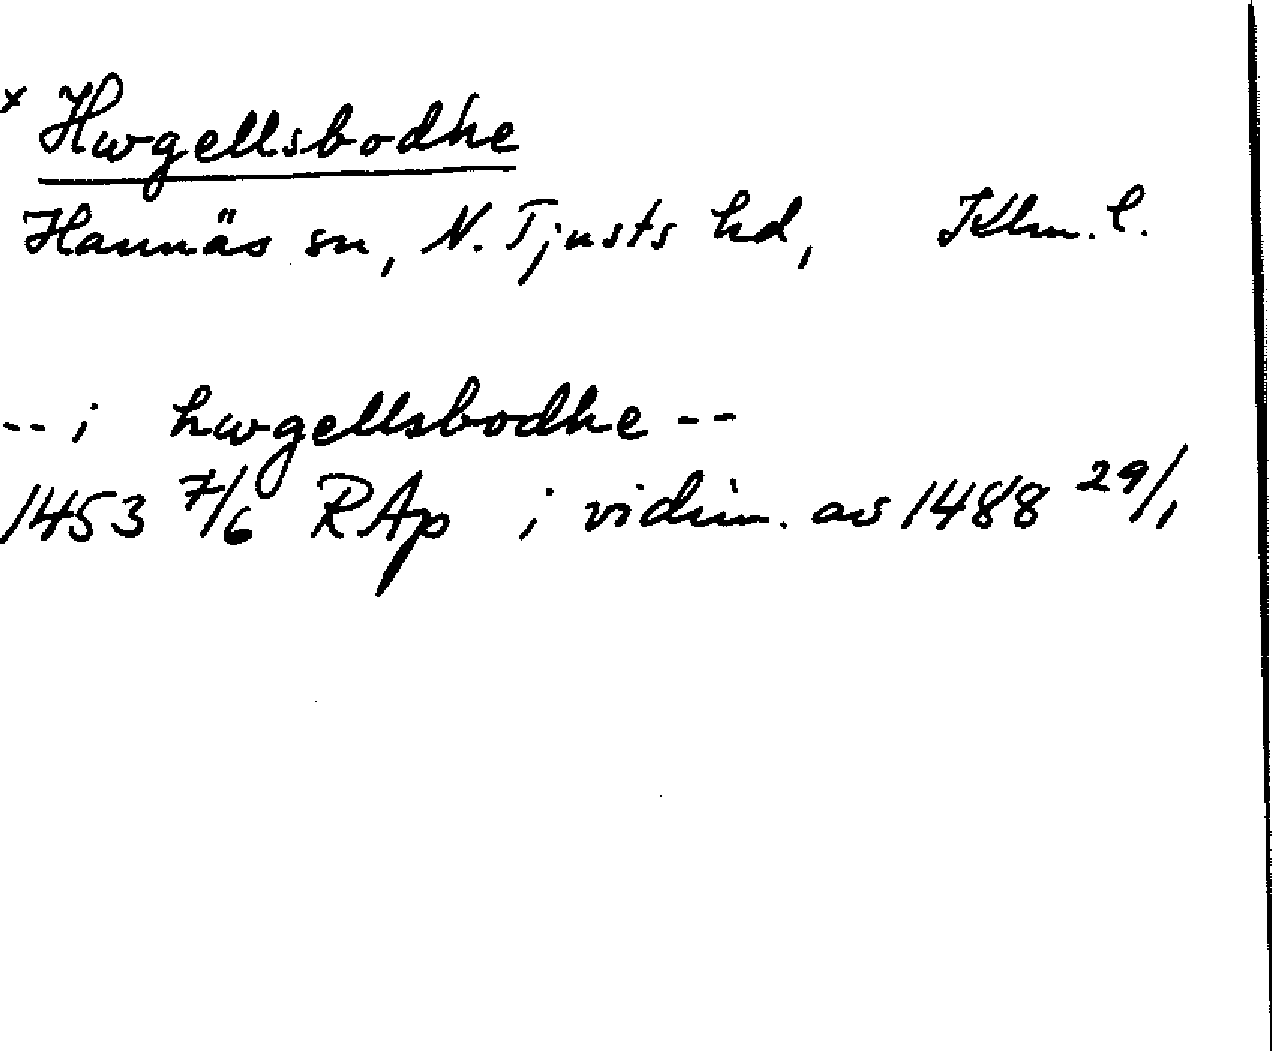 x Hwgellsbodhe
Hannäs sn, N. Tjusts hd, Klm. l.
-- i hwgellsbodhe --
1453 7/6 RAp i vidim. av 1488 29/1